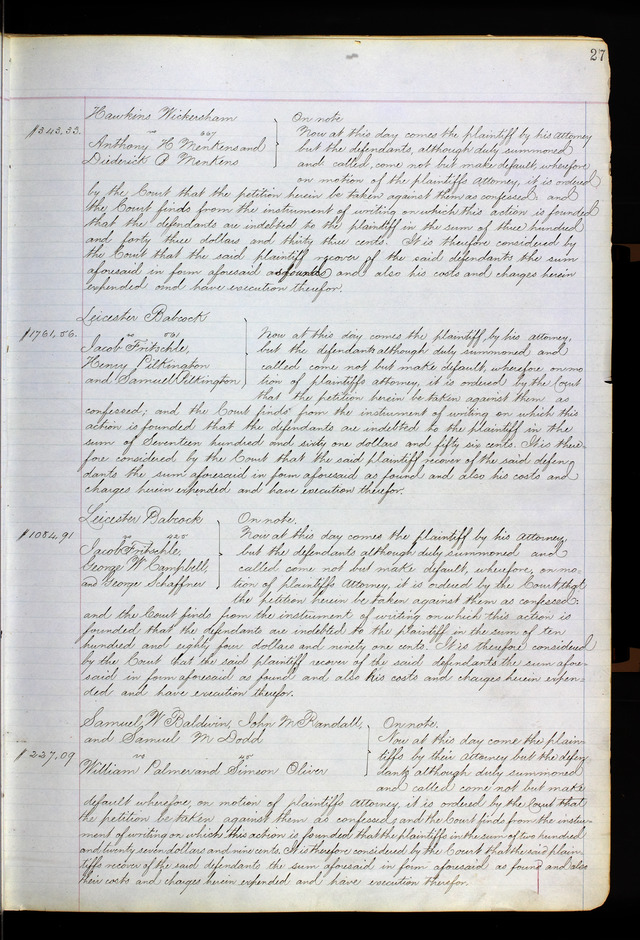 27
Hawkins Wickersham On note
$343.33. vs 267 Now at this day comes the plaintiff by his Attorney
Anthony H Menkens and but the defendants, although duly summoned
Diederick P Menkens and called, come not but make default, wherefore
on motion of the plaintiffs Attorney, it is ordered
by the Court that the petition herein be taken against them as confessed: and
the Court finds from the instrument of writing on which this action is founded
that the defendants are indebted to the plaintiff in the sum of three hundred
and forty three dollars and thirty three cents. It is therefore considered by
the Court that the said plaintiff recover of the said defendants the sum
aforesaid in form aforesaid as found and also his costs and charges herein
expended and have execution therefor.
Leicester Babcock
$1761.56. vs Now at this day comes the plaintiff, by his attorney,
Jacob Fritschle, but the defendants although duly summoned and
Henry Pilkington called come not but make default, wherefore on mo
and Samuel Pilkington tion of plaintiffs attorney, it is ordered by the Court
that the petition herein be taken against them as
confessed; and the Court finds from the instrument of writing on which this
action is founded that the defendants are indebted to the plaintiff in the
sum of Seventeen hundred and sixty one dollars and fifty six cents. It is there-
fore considered by the Court that the said plaintiff recover of the said defen
dants the sum aforesaid in form aforesaid as found and also his costs and
charges herein expended and have execution therefor.
Leicester Babcock On note.
$1084.91 vs Now at this day comes the plaintiff by his Attorney
Jacob Fritschle, but the defendants although duly summoned and
George W Campbell, called come not but make default, wherefore, on mo-
and George Schaffner tion of plaintiffs Attorney, it is ordered by the Court that
the petition herein be taken against them as confessed:
and the Court finds from the instrument of writing on which this action is
founded that the defendants are indebted to the plaintiff in the sum of ten
hundred and eighty four dollars and ninety one cents. It is therefore considered
by the Court that the said plaintiff recover of the said defendants the sum afore-
said in form aforesaid as found and also his costs and charges herein expen-
ded and have execution therefor.
Samuel W Baldwin, John M Randall, On note.
and Samuel M Dodd Now at this day come the plain-
$227.09 vs tiffs by their Attorney but the defen
William Palmer and Simson Oliver dants although duly summoned
and called come not but make
default wherefore, on motion of plaintiffs Attorney, it is ordered by the Court that
the petition be taken against them as confessed, and the Court finds from the instru-
ment of writing on which this action is founded that the plaintiffs in the sum of two hundred
and twenty seven dollars and nine cents. It is therefore considered by the Court that the said plain-
tiffs recover of the said defendants the sum aforesaid in form aforesaid as found and also
their costs and charges herein expended and have execution therefor.